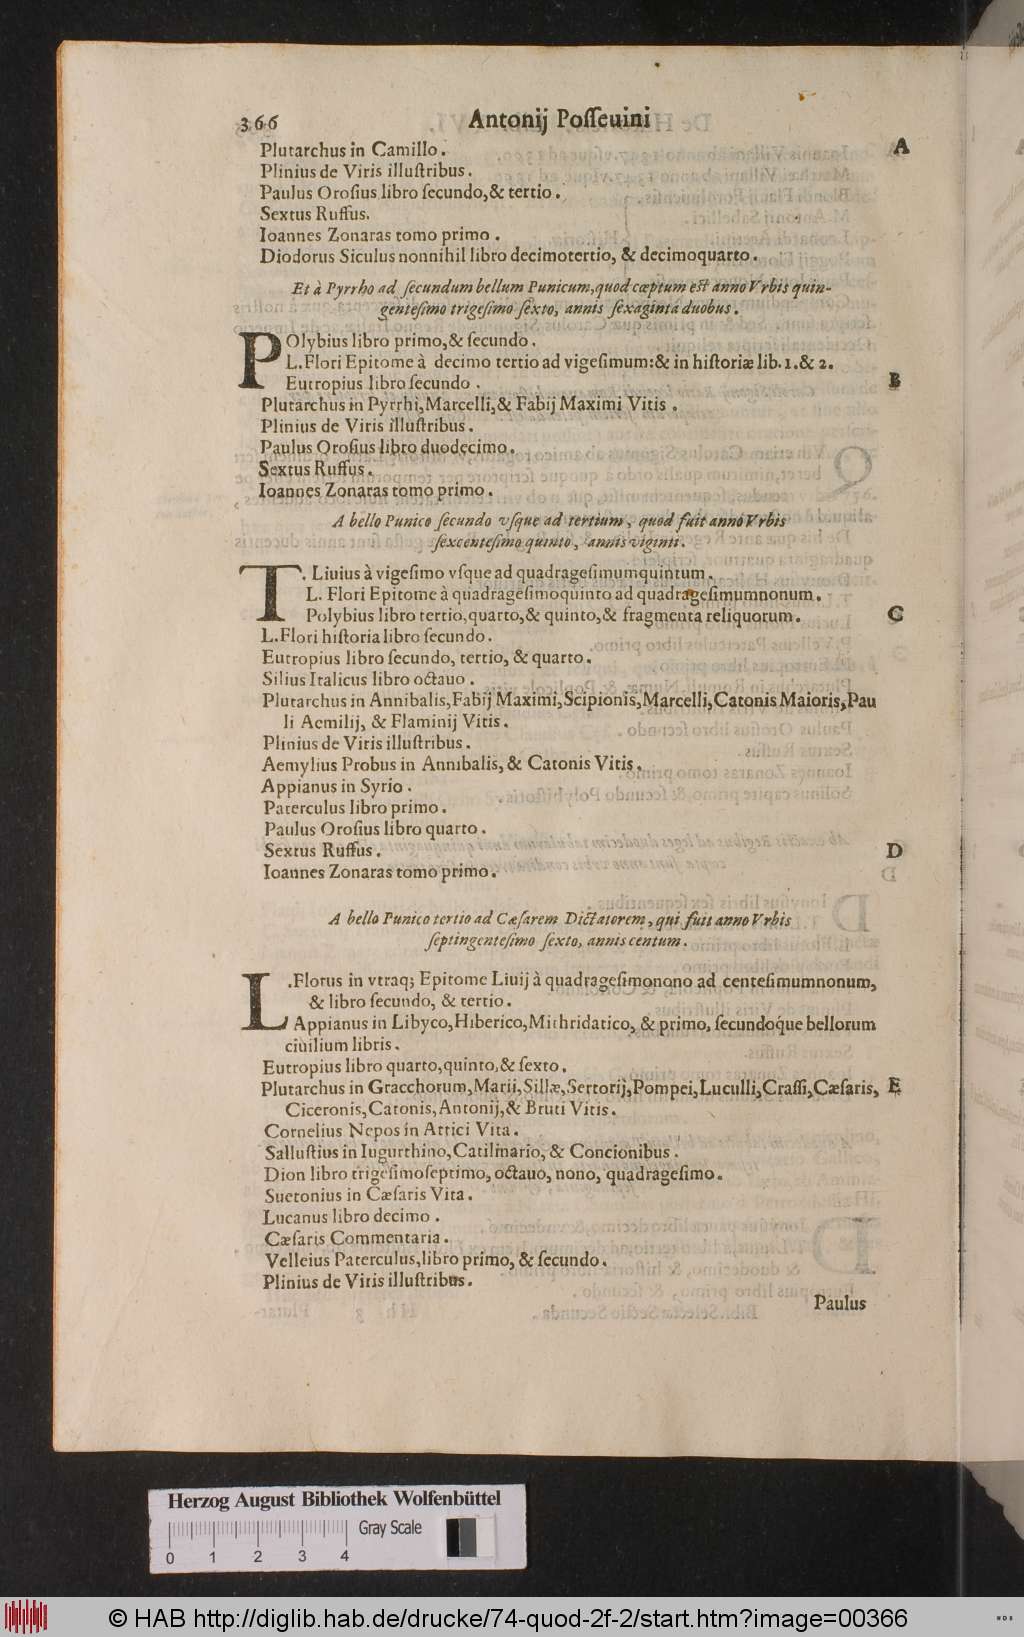 366 Antonij Posseuini
Plutarchus in Camillo.
A
Plinius de Viris illustribus.
Paulus Orosius libro secundo, & tertio.
Sextus Ruffus.
Ioannes Zonaras tomo primo.
Diodorus Siculus nonnihil libro decimotertio, & decimoquarto.
Et à Pyrrho ad secundum bellum Punicum, quod cœptum est anno Vrbis quin-
gentesimo trigesimo sexto, annis sexaginta duobus.
POlybius libro primo, & secundo.
L. Flori Epitome à decimo tertio ad vigesimum: & in historiæ lib. 1. & 2.
Eutropius libro secundo.
B
Plutarchus in Pyrrhi, Marcelli, & Fabij Maximi Vitis.
Plinius de Viris illustribus.
Paulus Orosius libro duodecimo.
Sextus Ruffus.
Ioannes Zonaras tomo primo.
A bello Punico secundo vsque ad tertium, quod fuit anno Vrbis
sexcentesimo quinto, annis viginti.
T. Liuius à vigesimo vsque ad quadragesimumquintum.
L. Flori Epitome à quadragesimoquinto ad quadragesimumnonum.
Polybius libro tertio, quarto, & quinto, & fragmenta reliquorum.
C
L. Flori historia libro secundo.
Eutropius libro secundo, tertio, & quarto.
Silius Italicus libro octauo.
Plutarchus in Annibalis, Fabij Maximi, Scipionis, Marcelli, Catonis Maioris, Pau
li Aemilij, & Flaminij Vitis.
Plinius de Viris illustribus.
Aemylius Probus in Annibalis, & Catonis Vitis.
Appianus in Syrio.
Paterculus libro primo.
Paulus Orosius libro quarto.
Sextus Ruffus.
D
Ioannes Zonaras tomo primo.
A bello Punico tertio ad Cæsarem Dictatorem, qui fuit anno Vrbis
septingentesimo sexto, annis centum.
L. Florus in vtraq; Epitome Liuij à quadragesimonono ad centesimumnonum,
& libro secundo, & tertio.
Appianus in Libyco, Hiberico, Mithridatico, & primo, secundoque bellorum
ciuilium libris.
Eutropius libro quarto, quinto, & sexto.
Plutarchus in Gracchorum, Marii, Sillæ, Sertorij, Pompei, Luculli, Crassi, Cæsaris,
E
Ciceronis, Catonis, Antonij, & Bruti Vitis.
Cornelius Nepos in Attici Vita.
Sallustius in Iugurthino, Catilinario, & Concionibus.
Dion libro trigesimoseptimo, octauo, nono, quadragesimo.
Suetonius in Cæsaris Vita.
Lucanus libro decimo.
Cæsaris Commentaria.
Velleius Paterculus, libro primo, & secundo.
Plinius de Viris illustribus.
Paulus
Herzog August Bibliothek Wolfenbüttel
Gray Scale
0 1 2 3 4
© HAB http://diglib.hab.de/drucke/74-quod-2f-2/start.htm?image=00366